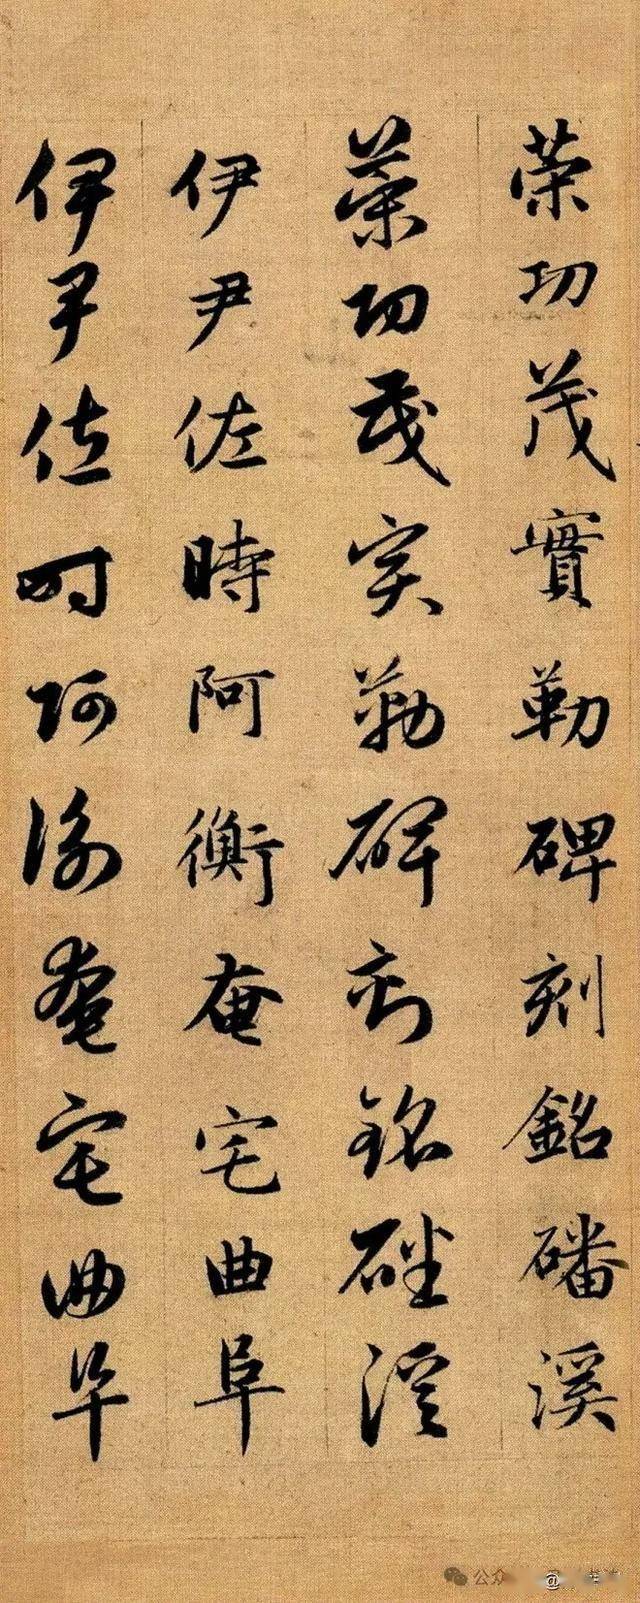 荣功茂實勒碑刻銘磻溪
荣功茂实勒碑刻銘磻溪
伊尹佐時阿衡奄宅曲阜
伊尹佐时阿衡奄宅曲阜
公众
@